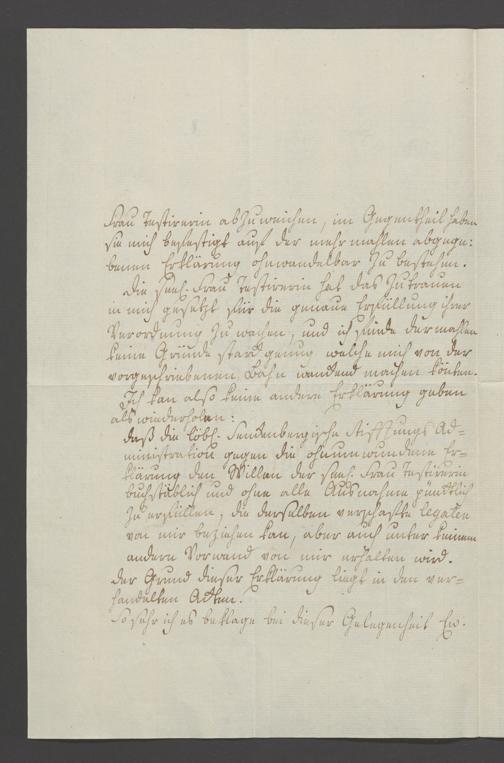 Frau Testirerin abzuweichen, im Gegentheil haben
sie mich befestigt auf der mehrmahlen abgege:
benen Erklärung ohnwandelbar zu bestehen.
Die seel. Frau Testirerin hat das Zutrauen
in mich gesetzt für die genaue Erfüllung ihrer
Verordnung zu wachen, und ich finde dermahlen
keine Gründe stark genung welche mich von der
vorgeschriebenen Bahn wankend machen könten.
Ich kan also keine andere Erklärung geben
als wiederholen:
daß die löbl. Senkenbergische Stifftungs Ad=
ministration gegen die ohnumwundene Er=
klärung den Willen der seel. Frau Testirerin
buchstäblich und ohne alle Ausnahme pünktlich
zu erfüllen, die derselben vermachte Legaten
von mir beziehen kan, aber auch unter keinem
andern Vorwand von mir erhalten wird.
Der Grund dieser Erklärung liegt in den ver=
handelten Akten.
So sehr ich es beklage bei dieser Gelegenheit Ew.